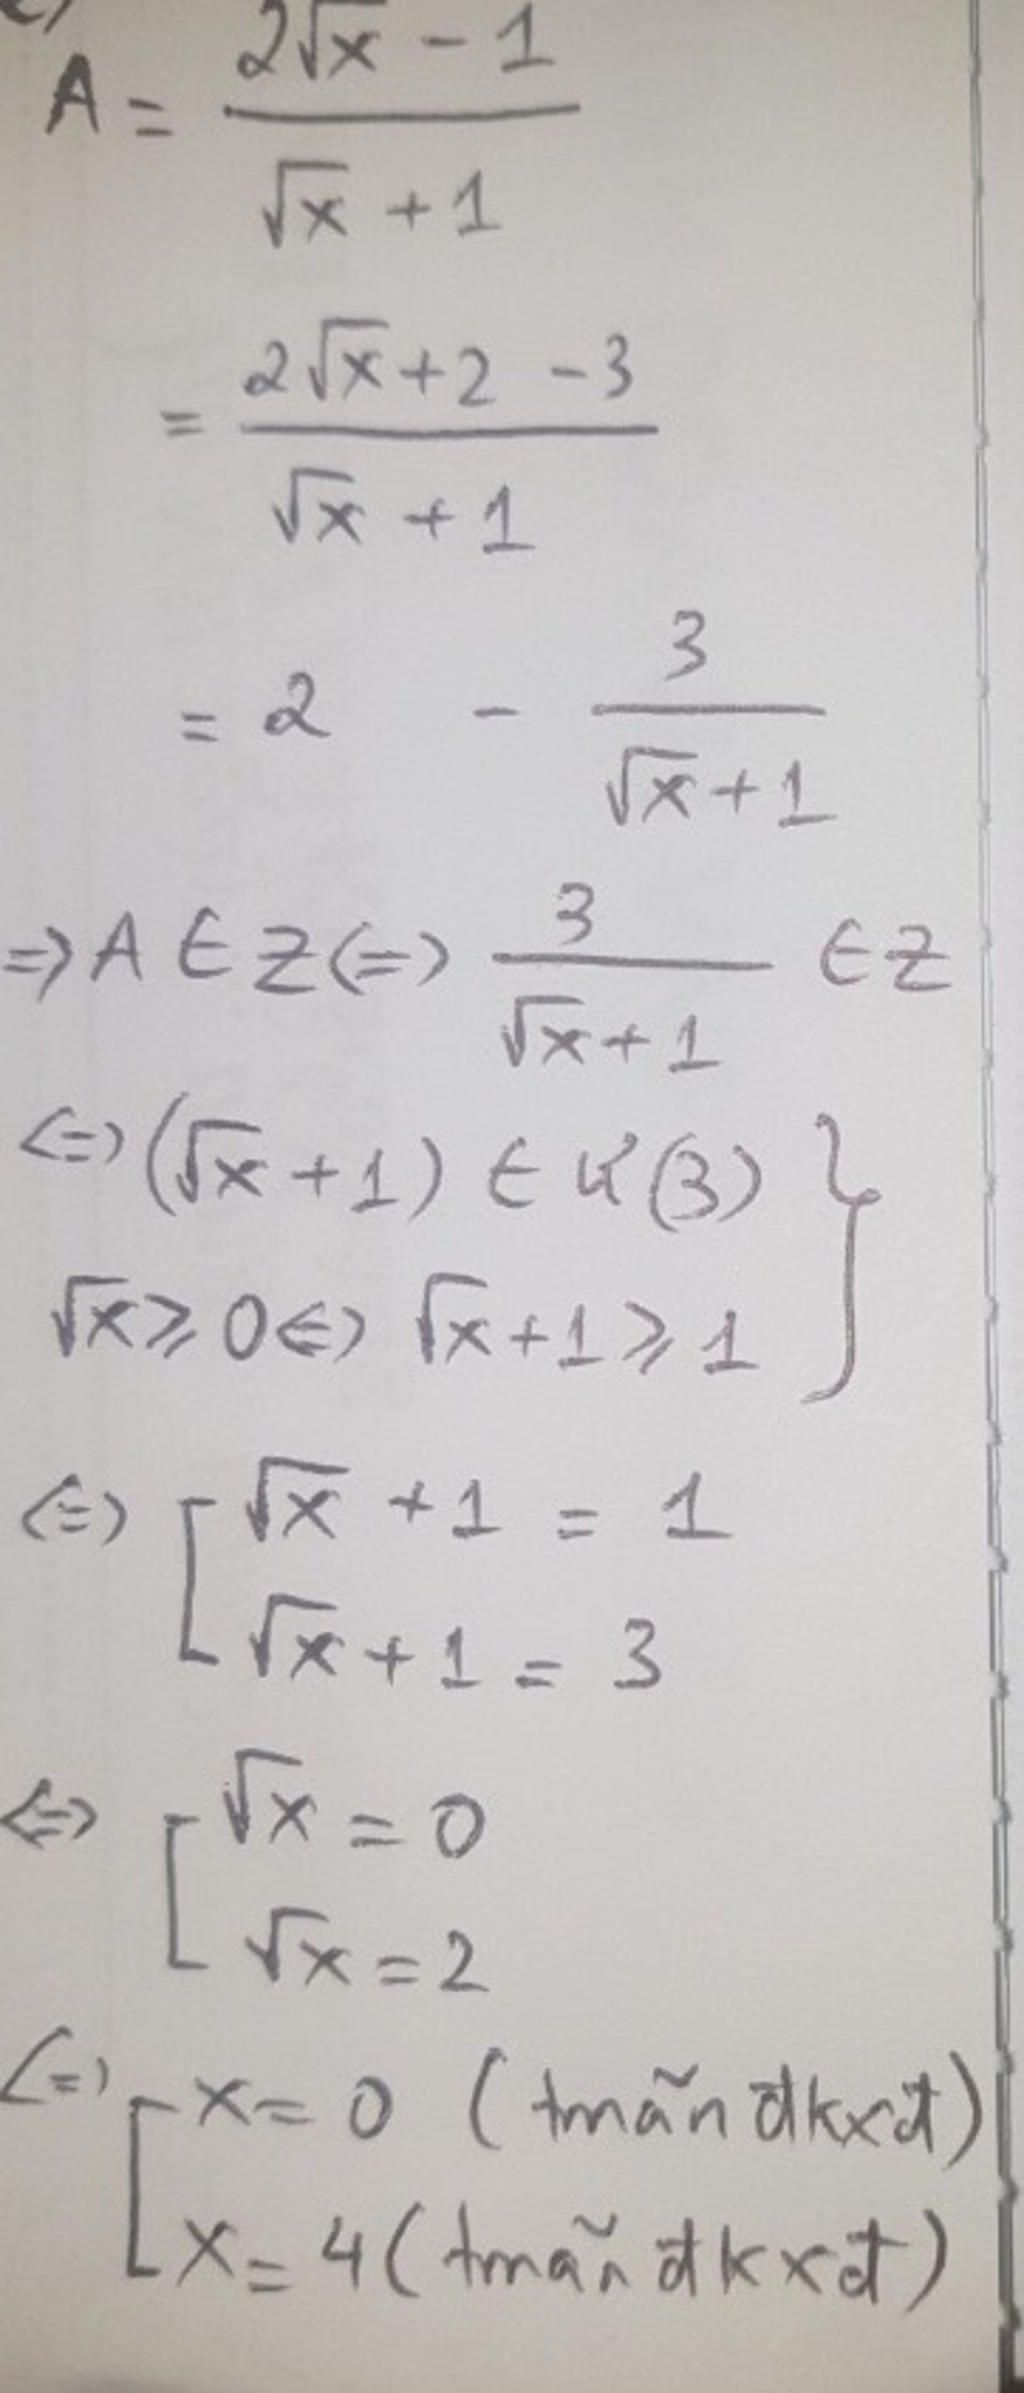 c)
A = \frac{2\sqrt{x} - 1}{\sqrt{x} + 1}
= \frac{2\sqrt{x} + 2 - 3}{\sqrt{x} + 1}
= 2 - \frac{3}{\sqrt{x} + 1}
=> A ∈ Z <=> \frac{3}{\sqrt{x} + 1} ∈ Z
<=> (\sqrt{x} + 1) ∈ Ư(3) }
\sqrt{x} ⩾ 0 <=> \sqrt{x} + 1 ⩾ 1
<=> [ \sqrt{x} + 1 = 1
\sqrt{x} + 1 = 3
<=> [ \sqrt{x} = 0
\sqrt{x} = 2
<=> [ x = 0 (tmãn đkxđ)
x = 4 (tmãn đkxđ)